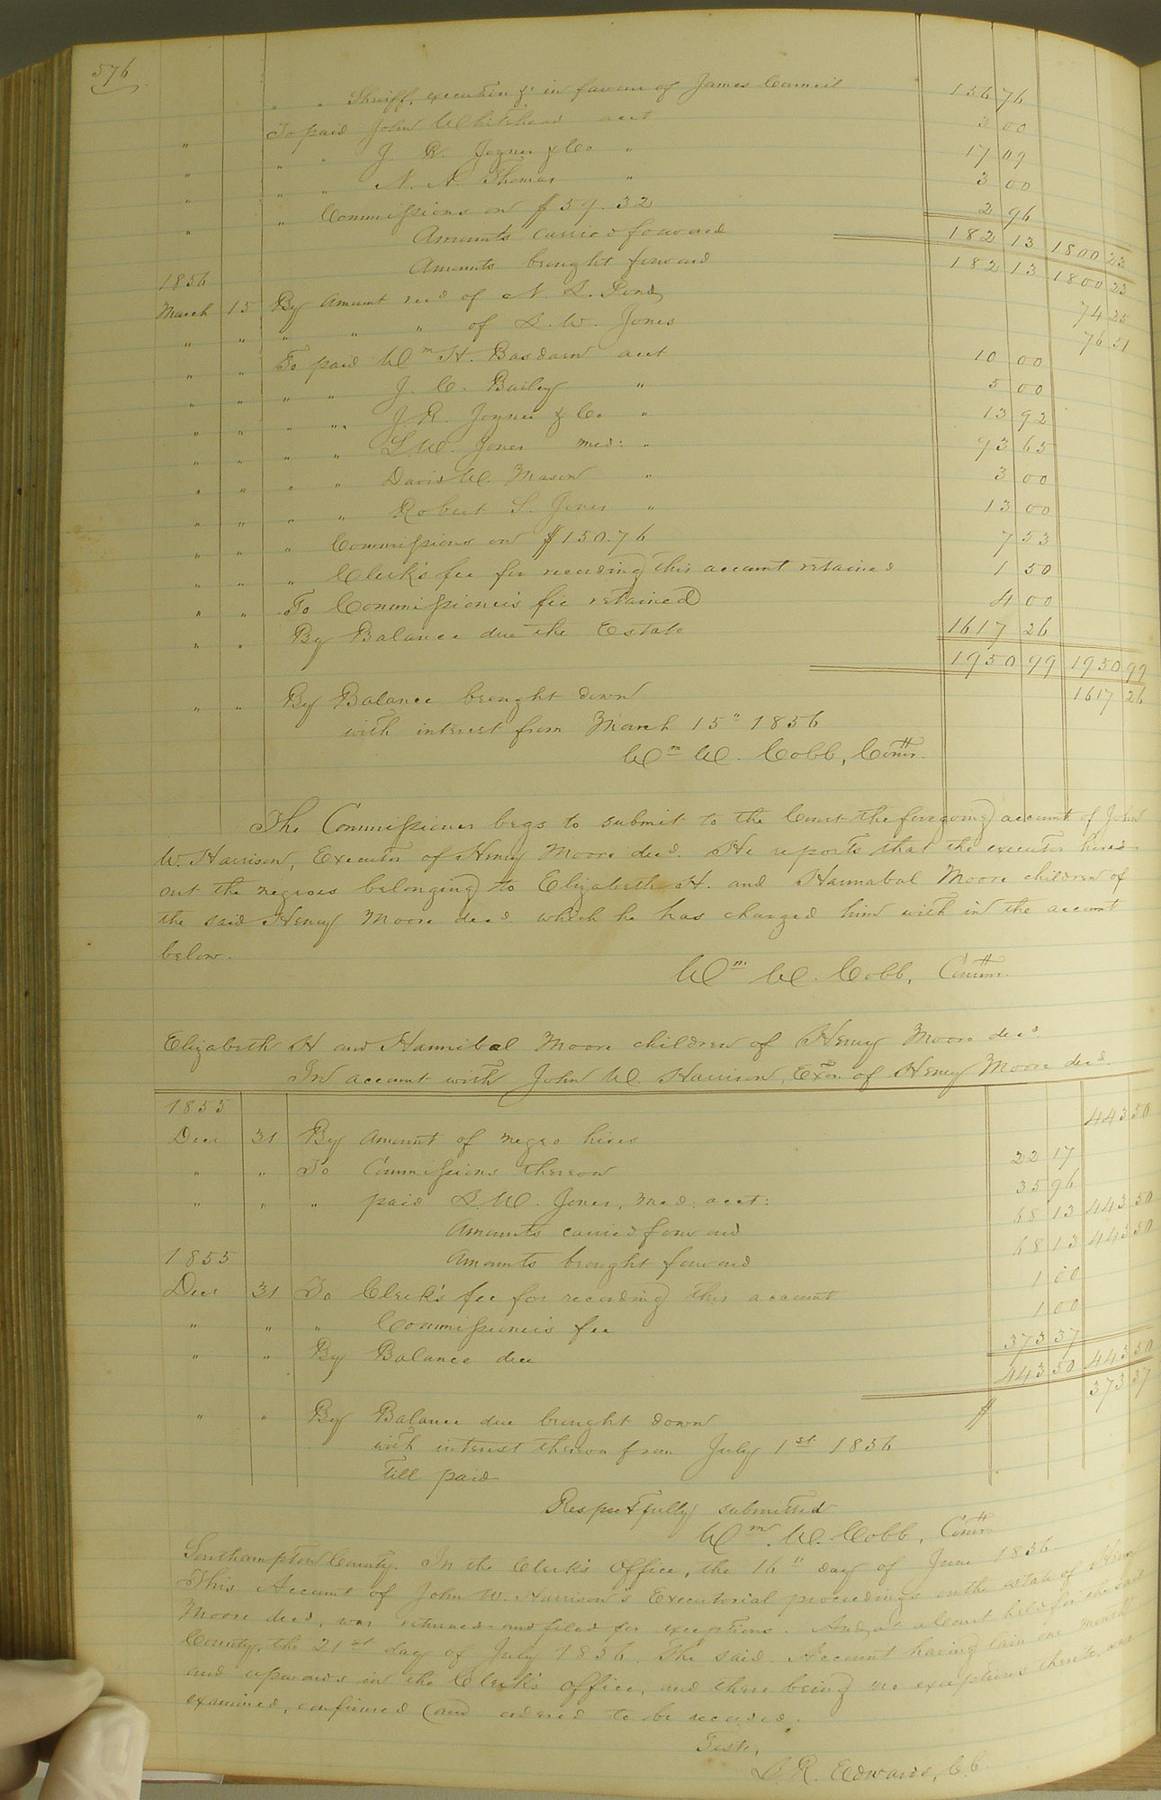 576
" " Sheriff, execution &c in favour of James Council 156 76
" To paid John Whitehead acct 3 00
" " " J. R. Joyner & Co " 17 09
" " " N. N. Thomas " 3 00
" " Commissions on $59.32 2 96
Amounts carried forward 182 13 1800 23
1856 Amounts brought forward 182 13 1800 23
March 15 By Amount recd of N. L. Pond 74 25
" " " " " of L. W. Jones 76 51
" " To paid Wm H. Basdarn acct 10 00
" " " " J. C. Bailey " 5 00
" " " " J. R. Joyner & Co " 13 92
" " " " L W. Jones med: " 93 65
" " " " Davis W. Mason " 3 00
" " " " Robert S. Jones " 13 00
" " " Commissions on $150.76 7 53
" " " Clerk's fee for recording this account retained 1 50
" " To Commissioner's fee retained 4 00
" " By Balance due the Estate 1617 26
1950 99 1950 99
" " By Balance brought down 1617 26
with interest from March 15" 1856
Wm W. Cobb, Comr.
The Commissioner begs to submit to the Court the foregoing account of John
W. Harrison, Executor of Henry Moore decd. He reports that the executor hired
out the negroes belonging to Elizabeth H. and Hannabal Moore children of
the said Henry Moore decd which he has charged him with in the account
below.
Wm W. Cobb, Comm.
Elizabeth H and Hannibal Moore children of Henry Moore decd.
In account with John W. Harrison, Exor. of Henry Moore decd.
1855 443 50
Decr 31 By Amount of negro hires
" " To Commissions thereon 22 17
" " " paid L. W. Jones, med. acct: 35 96
Amounts carried forward 58 13 443 50
1855 Amounts brought forward 58 13 443 50
Decr 31 To Clerk's fee for recording this account 1 00
" " " Commissioner's fee 1 00
" " By Balance due 373 37
443 50 443 50
" " By Balance due brought down $ 373 37
with interest thereon from July 1st 1856
till paid
Respectfully submitted
Wm. W. Cobb, Comr.
Southampton County. In the Clerk's Office, the 16" day of June 1856
This Account of John W. Harrison's Executorial proceedings on the estate of Henry
Moore decd, was returned and filed for exceptions. And, at a Court held for the said
County, the 21st day of July 1856. The said Account having lain one month
and upwards in the Clerk's office, and there being no exceptions thereto, was
examined, confirmed and ordered to be recorded.
Teste,
L. R. Edwards, C.C.